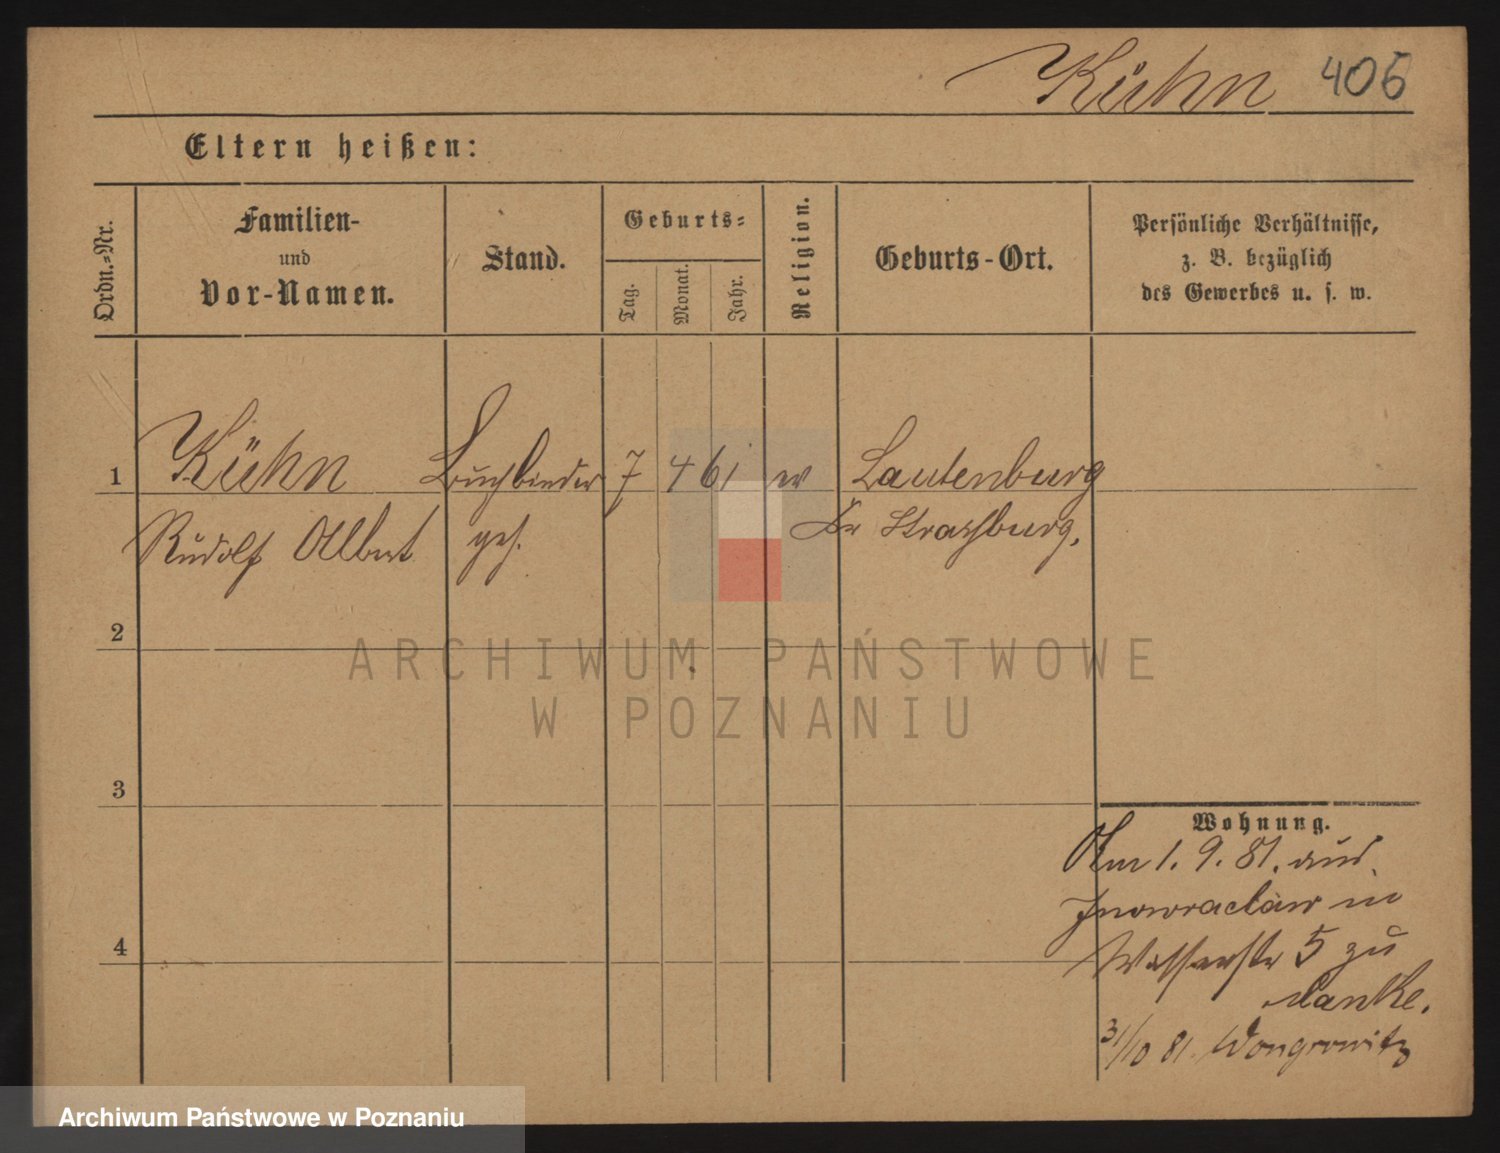 Kühn 406
Eltern heißen:
Ordn.-Nr.
Familien-
und
Vor-Namen.
Stand.
Geburts-
Tag.
Monat.
Jahr.
Religion.
Geburts-Ort.
Persönliche Verhältnisse,
z. B. bezüglich
des Gewerbes u. s. w.
1 Kühn Buchbinder 7 4 61 ev Lautenburg
Rudolf Albert geh. Kr Strasburg.
2
ARCHIWUM PAŃSTWOWE
W POZNANIU
3
Wohnung.
Am 1. 9. 81. aus
Inowraclaw in
4
Wasserstr 5 zu
Manke.
31/10 81. Wongrowitz
Archiwum Państwowe w Poznaniu